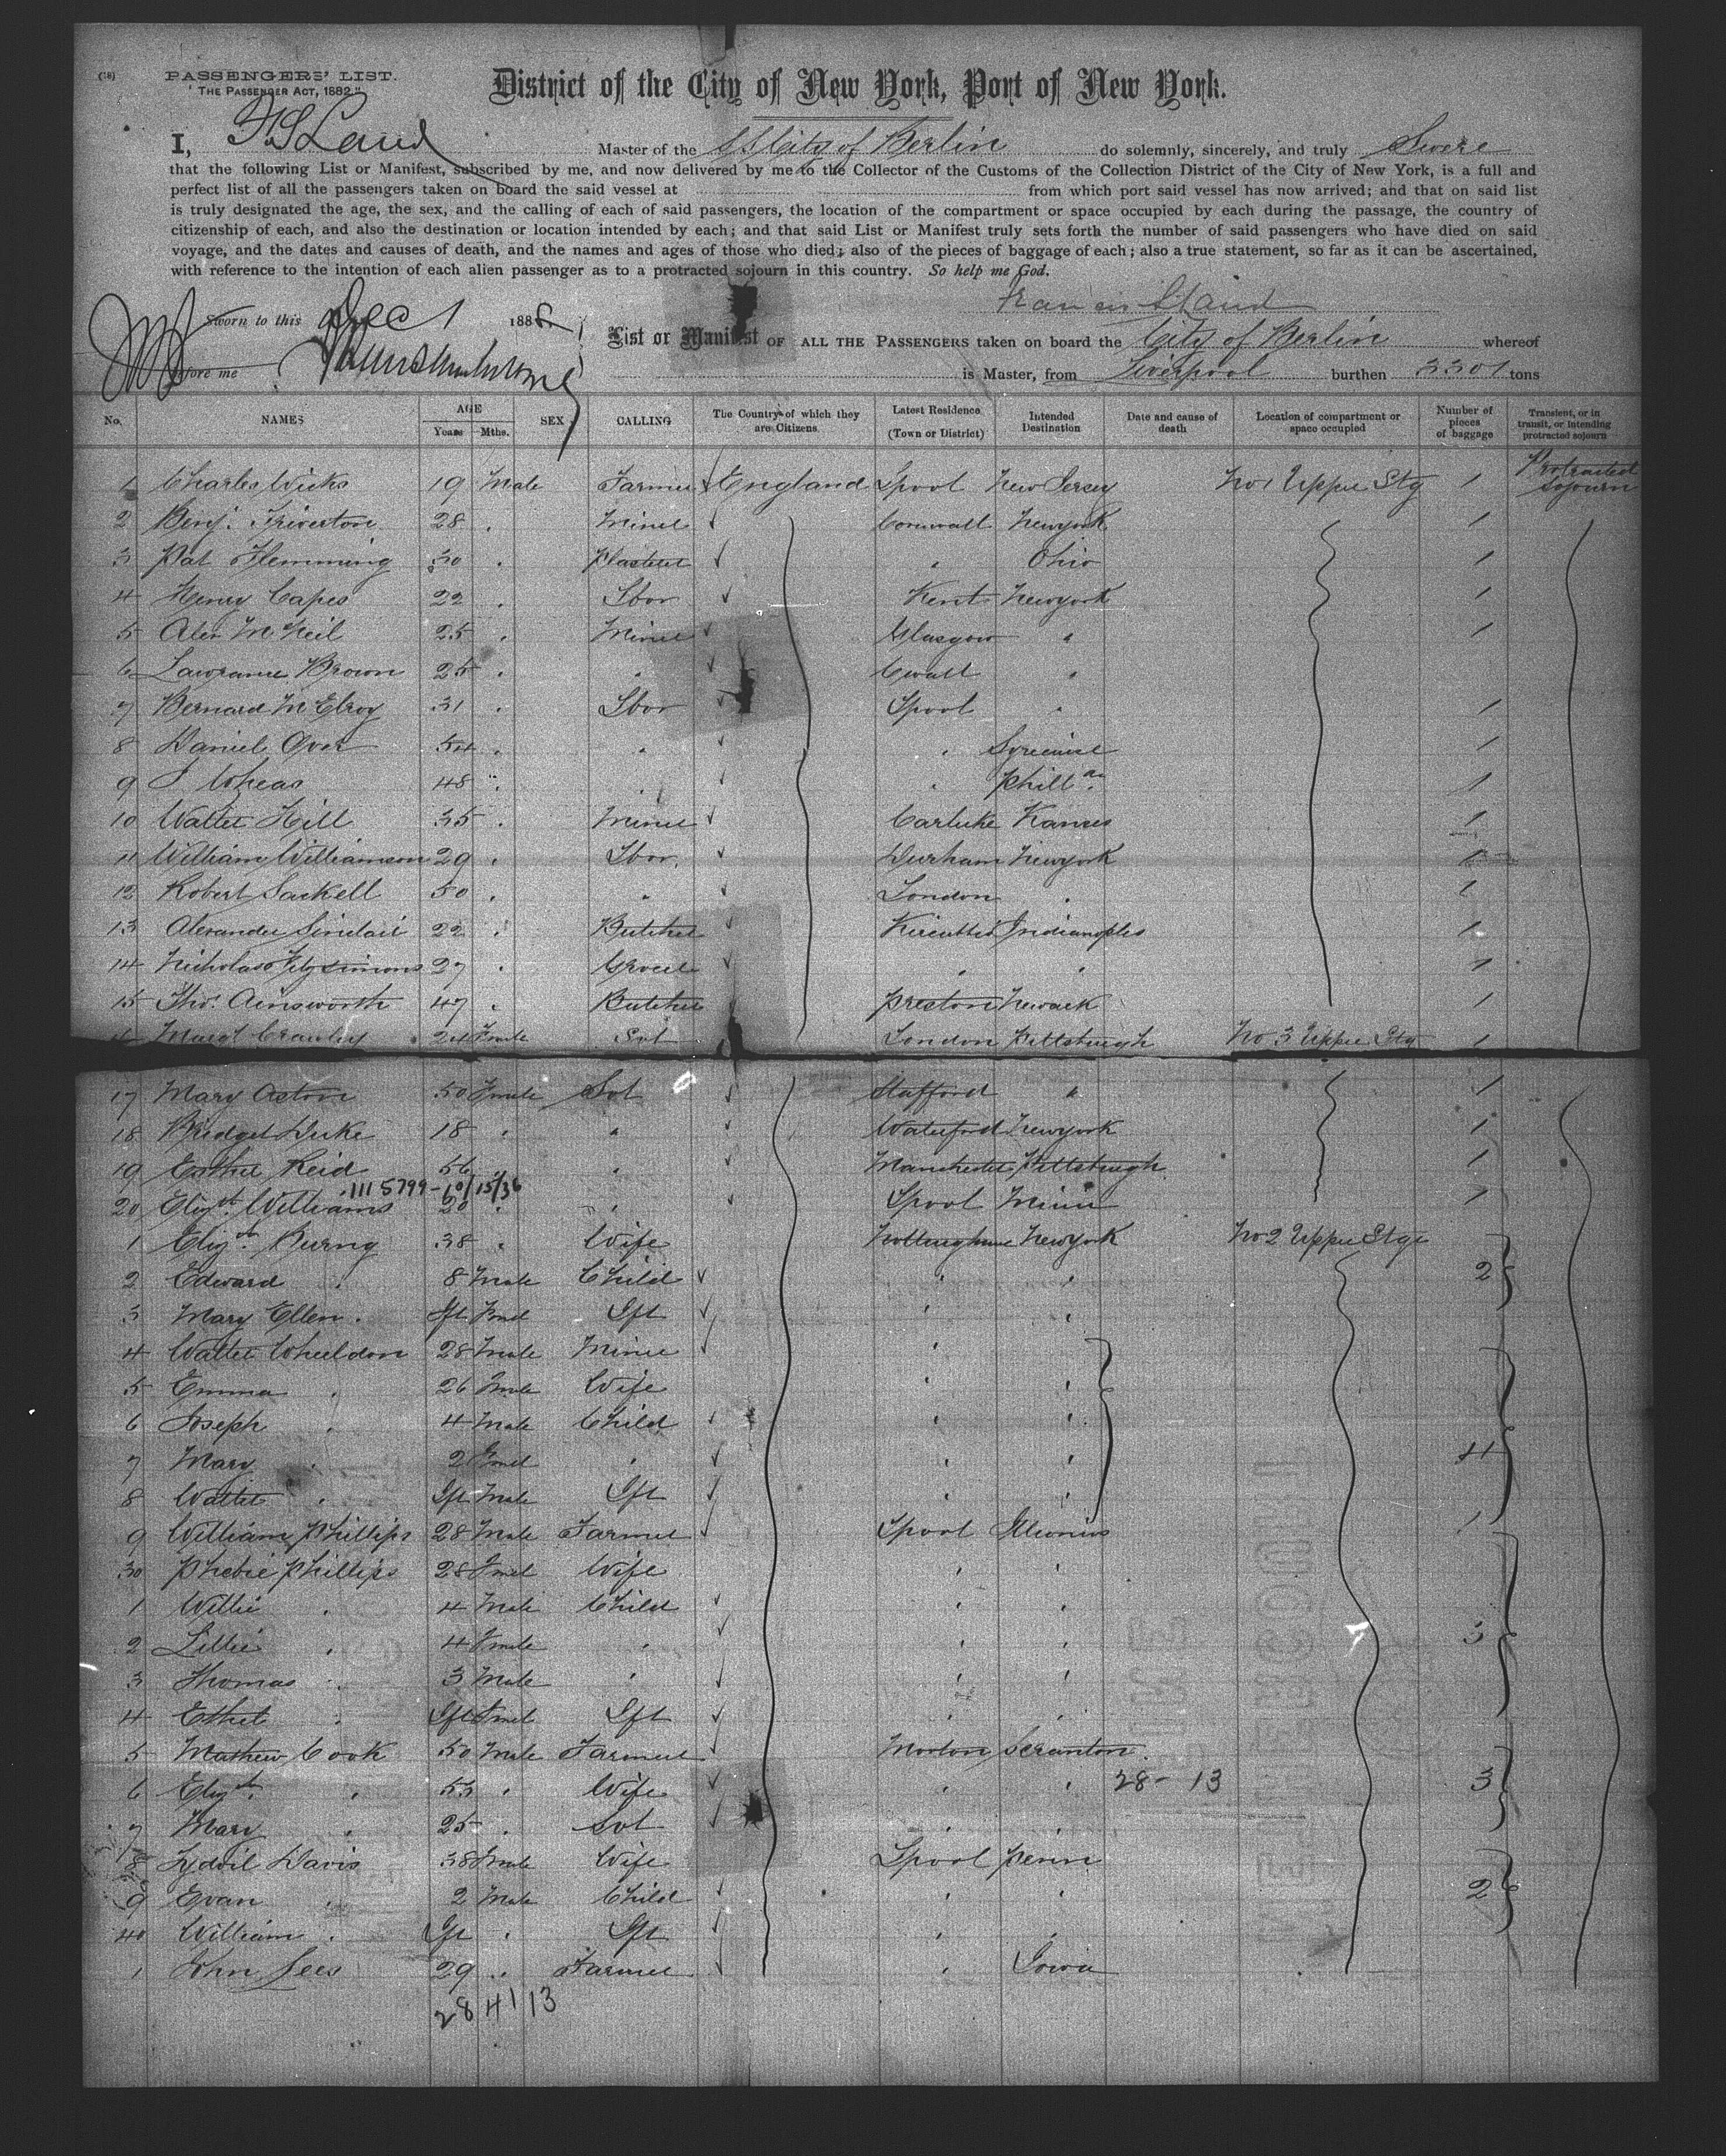 (18)
PASSENGERS' LIST.
"THE PASSENGER ACT, 1882."
District of the City of New York, Port of New York.
I, F S Land Master of the SS City of Berlin do solemnly, sincerely, and truly Swere
that the following List or Manifest, subscribed by me, and now delivered by me to the Collector of the Customs of the Collection District of the City of New York, is a full and
perfect list of all the passengers taken on board the said vessel at from which port said vessel has now arrived; and that on said list
is truly designated the age, the sex, and the calling of each of said passengers, the location of the compartment or space occupied by each during the passage, the country of
citizenship of each, and also the destination or location intended by each; and that said List or Manifest truly sets forth the number of said passengers who have died on said
voyage, and the dates and causes of death, and the names and ages of those who died; also of the pieces of baggage of each; also a true statement, so far as it can be ascertained,
with reference to the intention of each alien passenger as to a protracted sojourn in this country. So help me God.
Francis S Land
Sworn to this Dec 1 1888
List or Manifest OF ALL THE PASSENGERS taken on board the City of Berlin whereof
before me
is Master, from Liverpool burthen 3301 tons
No. NAMES AGE Years Mths. SEX CALLING The Country of which they are Citizens. Latest Residence (Town or District) Intended Destination Date and cause of death Location of compartment or space occupied Number of pieces of baggage Transient, or in transit, or intending protracted sojourn
1 Charles Wicks 19 Male Farmer England Lpool New Jersey No 1 Upper Stg 1 Protracted Sojourn
2 Benj. Triverton 28 " Miner Cornwall Newyork 1
3 Pat Flemming 30 " Plasterer " Ohio 1
4 Henry Capes 22 " Lbor Kent Newyork 1
5 Alex McNeil 25 " Miner Glasgow " 1
6 Lawrance Brown 25 " " Cwall "
7 Bernard McElroy 31 " Lbor Lpool " 1
8 Daniel Over 54 " " " 1
9 J Wheas 48 " " " Phill 1
10 Walter Hill 35 " Miner Carluke Kanses 1
11 William Williamson 29 " Lbor Durham Newyork 1
12 Robert Sackell 50 " " London " 1
13 Alexander Sinclair 22 " Butcher Indianoples 1
14 Nicholas Fitzsimons 27 " Grocer " " 1
15 Thos. Ainsworth 47 " Butcher Preston Newark 1
16 Margt Crawley 24 Fmale Svt London Pittsburgh No 3 Upper Stg 1
17 Mary Aston 50 Fmale Svt Stafford " 1
18 Bridget Duke 18 " " Waterford Newyork 1
19 Esther Reid 56 " Manchester Pittsburgh 1
111 5799 - 10/15/36
20 Elizth. Williams 20 " " Lpool Minn 1
1 Elizth. Burng 38 " Wife Nottingham Newyork No 2 Upper Stge
2 Edward " 8 Male Child " " 2
3 Mary Ellen " Ift Fmel Ift " "
4 Walter Wheeldon 28 Male Miner " "
5 Emma " 26 Fmale Wife " "
6 Joseph " 4 Male Child " "
7 Mary " 2 Fmel " " " 4
8 Walter " Ift Male Ift " "
9 William Phillips 28 Male Farmer Lpool Illionis 1
30 Phebie Phillips 28 Fmel Wife " "
1 Willie " 4 Male Child " "
2 Lillie " 4 Fmale " " " 3
3 Thomas " 3 Male " " "
4 Ethel " Ift Fmel Ift " "
5 Mathew Cook 50 Male Farmer Scranton
6 Elizth. " 53 " Wife " " 28 - 13 3
7 Mary " 25 " Svt " "
8 Lydvil Davis 38 Fmale Wife Lpool Penn
9 Evan " 2 Male Child " " 2
40 William " Ift " Ift " "
1 John Lees 29 " Farmer " Iowa
28 41 13